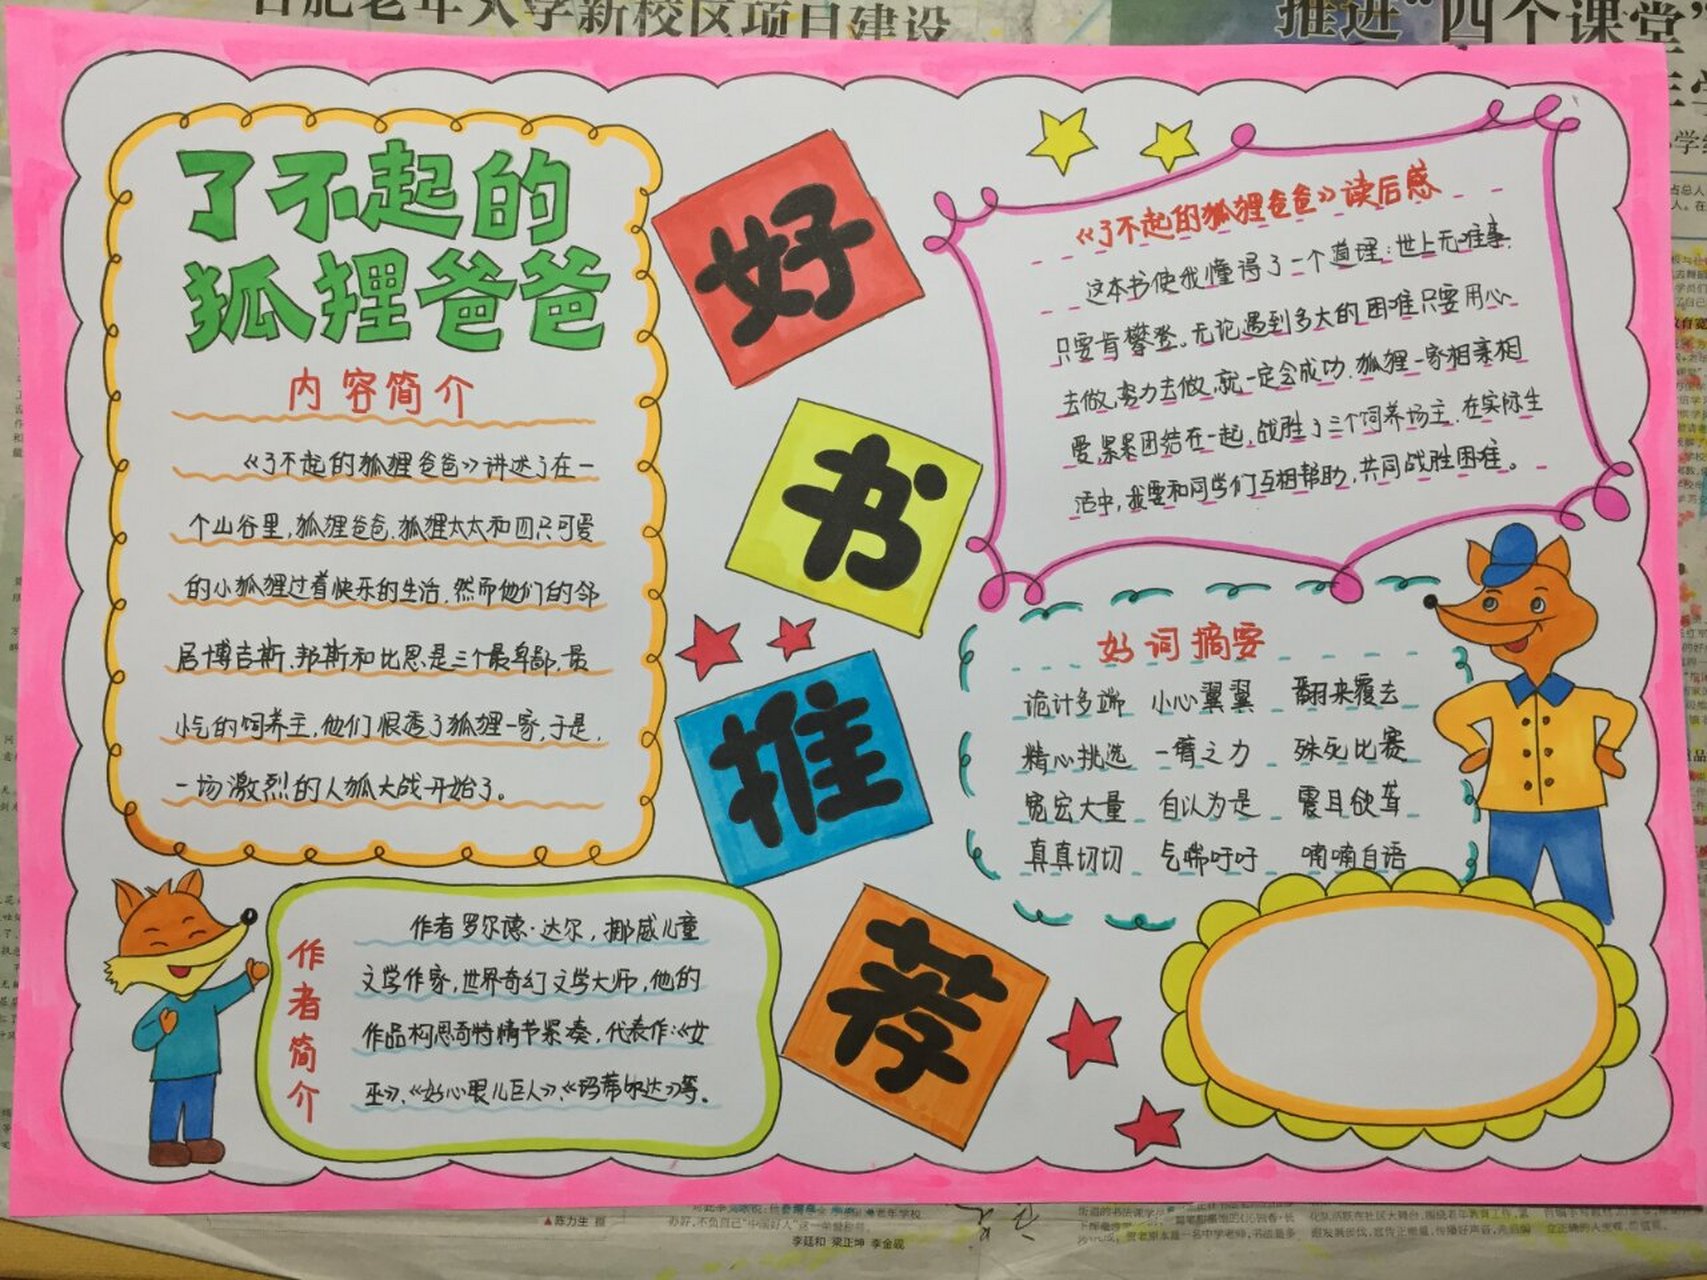 了不起的
狐狸爸爸
内容简介
《了不起的狐狸爸爸》讲述了在一
个山谷里,狐狸爸爸.狐狸太太和四只可爱
的小狐狸过着快乐的生活.然而他们的邻
居博吉斯.邦斯和比恩.是三个最卑鄙.最
小气的饲养主,他们恨透了狐狸一家,于是,
一场激烈的人狐大战开始了。
好
书
推
荐
《了不起的狐狸爸爸》读后感
这本书使我懂得了一个道理:世上无难事.
只要肯攀登。无论遇到多大的困难只要用心
去做,努力去做,就一定会成功.狐狸一家相亲相
爱,紧紧团结在一起,战胜了三个饲养场主.在实际生
活中,我要和同学们互相帮助,共同战胜困难。
好词摘要
诡计多端 小心翼翼 翻来覆去
精心挑选 一臂之力 殊死比赛
宽宏大量 自认为是 震耳欲聋
真真切切 气喘吁吁 喃喃自语
作者简介
作者罗尔德·达尔,挪威儿童
文学作家,世界奇幻文学大师,他的
作品构思奇特情节紧凑,代表作:《女
巫》、《好心眼儿巨人》、《玛蒂尔达》等。
合肥老年大学新校区项目建设
推进“四个课堂”
▲陈力生 摄
李廷和 梁正坤 李金砚